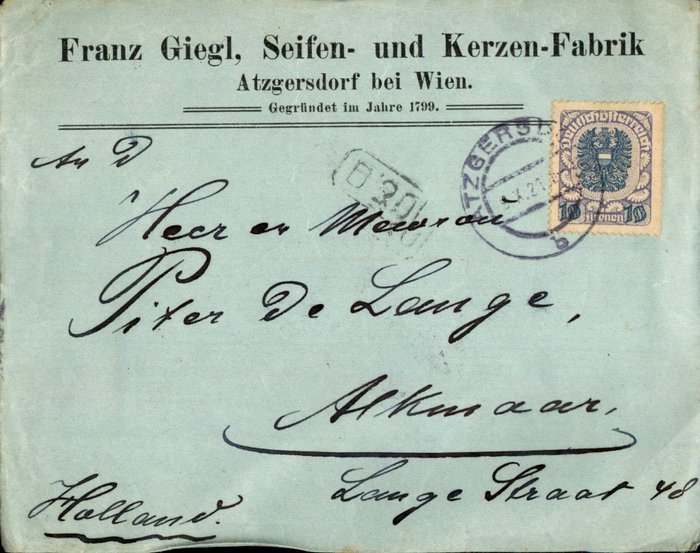 Franz Giegl, Seifen- und Kerzen-Fabrik
Atzgersdorf bei Wien.
Gegründet im Jahre 1799.
Deutschösterreich
10 Kronen 10
ATZGERSD
X.21
b
B20
An d
Heer en Mevron
Piter De Lange,
Alkmaar.
Lange Straat 48
Holland.